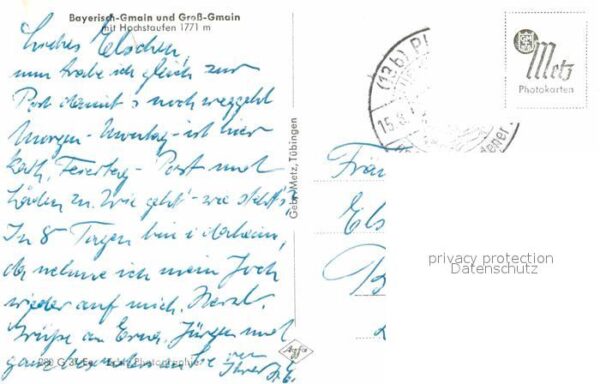 Bayerisch-Gmain und Groß-Gmain
mit Hochstaufen 1771 m
Liebes Elschen,
nun trabe ich gleich zur
Post damit's noch weggeht
Morgen - Montag - ist hier
kath. Feiertag - Post und
Läden zu. Wie geht's - wie steht's?
In 8 Tagen bin i daheim,
da nehme ich mein Joch
wieder auf mich. Herzl.
Grüße an Erna, Jürgen und
ganz besonders an Sie von
Ihrer
Gebr. Metz, Tübingen
Metz
Photokarten
(13b)
15.8.
Frä
Els
B
privacy protection
Datenschutz
Agfa